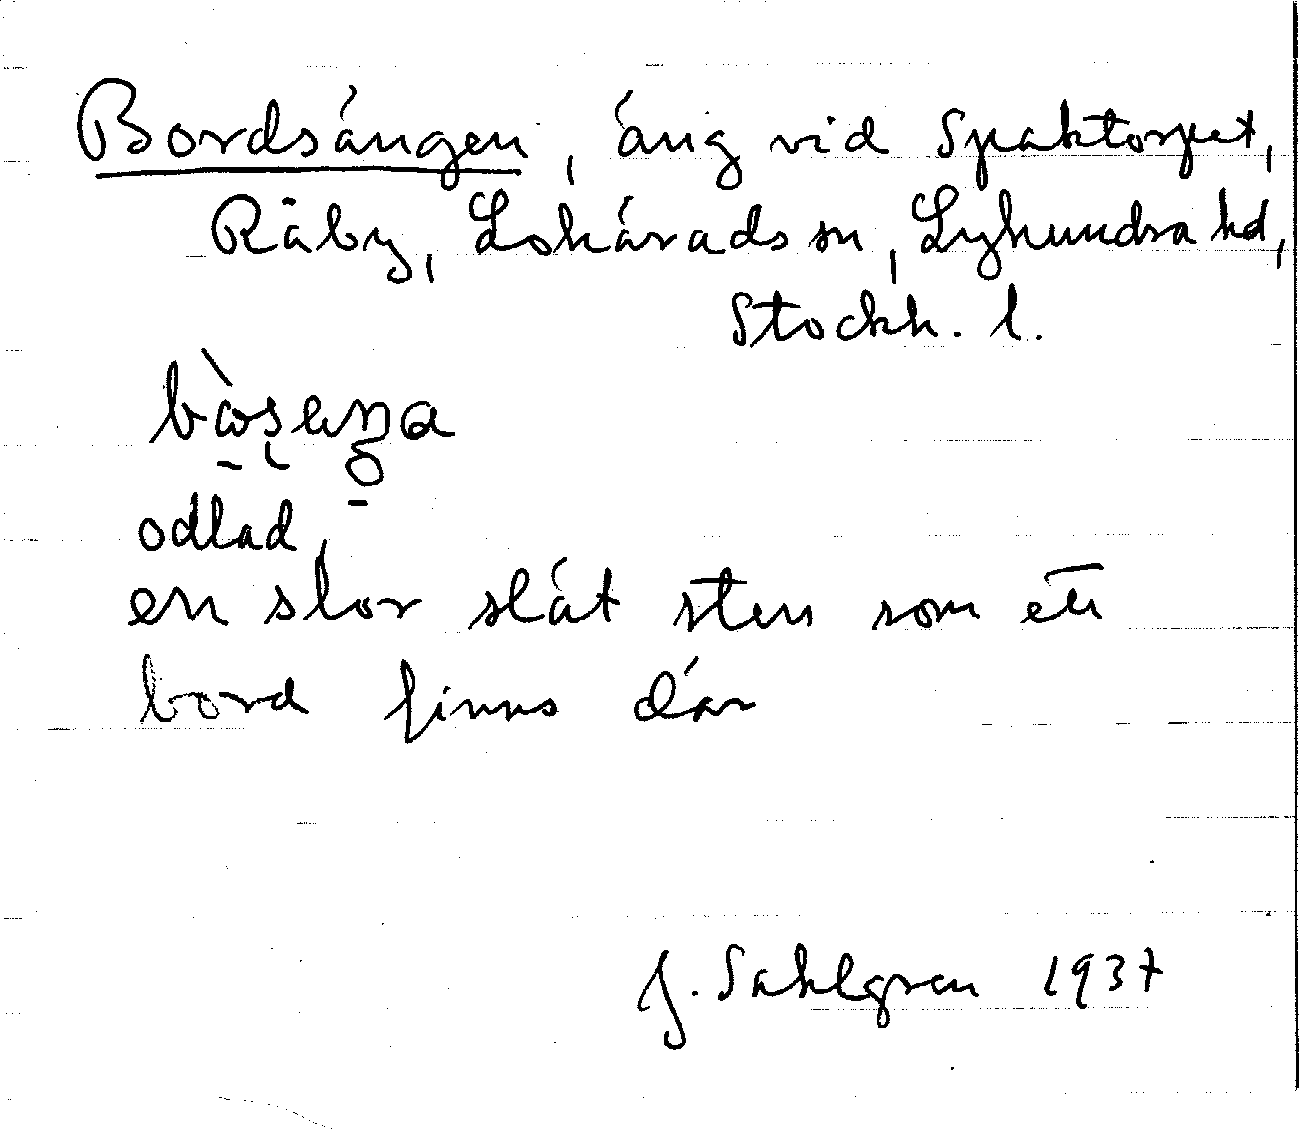 Bordsängen, äng vid Spaktorpet,
Räby, Lohärads sn, Lyhundra hd,
Stockh. l.
odlad,
en stor slät sten som ett
bord finns där
J. Sahlgren 1937